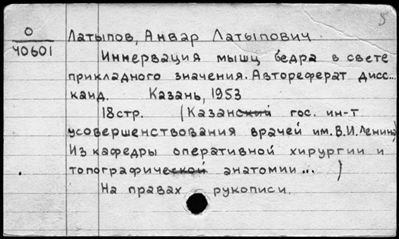 5
О Латыпов, Анвар Латыпович
40601
Иннервация мышц бедра в свете
прикладного значения. Автореферат дисс...
канд. Казань, 1953
18стр. (Казанский гос. ин-т
усовершенствования врачей им. В.И. Ленина)
Из кафедры оперативной хирургии и
топографической анатомии...)
На правах рукописи.